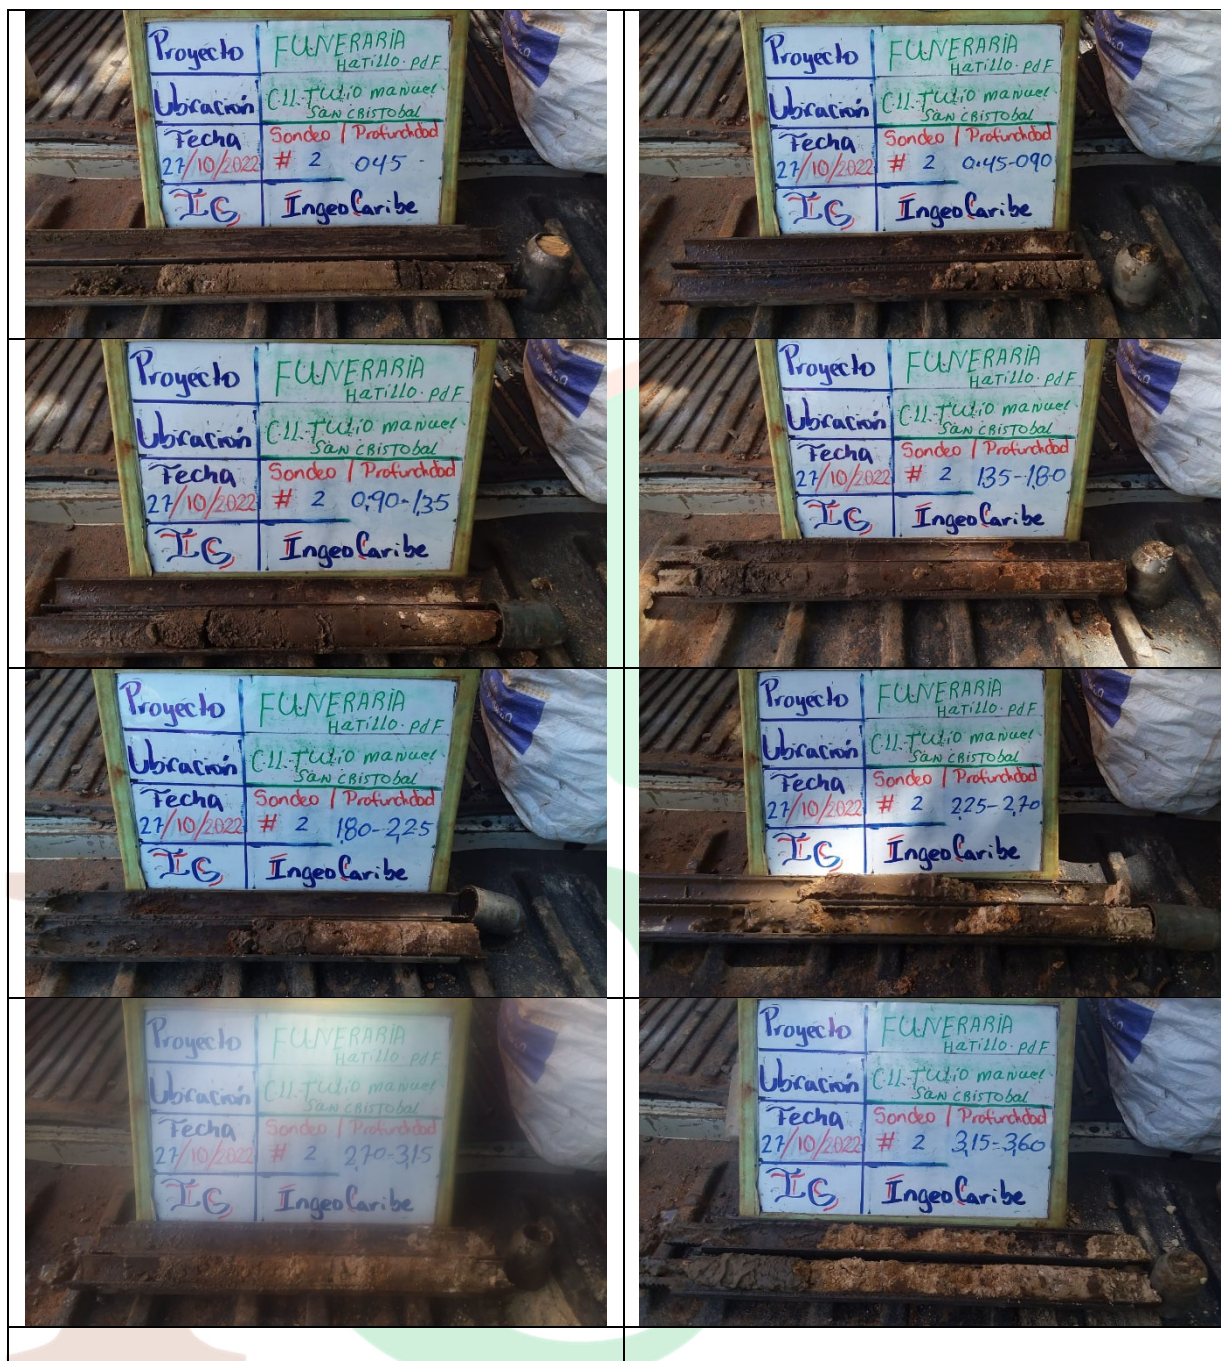 Proyecto
FUNERARIA
HaTiLLO. PdF
Ubicación
C/LL. TULiO manuel
SAN CRISTObal
Fecha
Sondeo / Profundidad
27/10/2022
# 2 045 -
IG
IngeoCaribe
Proyecto
FUNERARIA
HaTiLLO. PdF
Ubicación
C/LL. TULiO manuel
SAN CRISTObal
Fecha
Sondeo / Profundidad
27/10/2022
# 2 0.45-090
IG
IngeoCaribe
Proyecto
FUNERARIA
HaTiLLO. PdF
Ubicación
C/LL. TULiO manuel
SAN CRISTObal
Fecha
Sondeo / Profundidad
27/10/2022
# 2 0,90-1,35
IG
IngeoCaribe
Proyecto
FUNERARIA
HaTiLLO. PdF
Ubicación
C/LL. TULiO manuel
SAN CRISTObal
Fecha
Sondeo / Profundidad
27/10/2022
# 2 1,35-1,80
IG
IngeoCaribe
Proyecto
FUNERARIA
HaTiLLO. PdF
Ubicación
C/LL. TULiO manuel
SAN CRISTObal
Fecha
Sondeo / Profundidad
27/10/2022
# 2 1,80-2,25
IG
IngeoCaribe
Proyecto
FUNERARIA
HaTiLLO. PdF
Ubicación
C/LL. TULiO manuel
SAN CRISTObal
Fecha
Sondeo / Profundidad
27/10/2022
# 2 2,25-2,70
IG
IngeoCaribe
Proyecto
FUNERARIA
HaTiLLO. PdF
Ubicación
C/LL. TULiO manuel
SAN CRISTObal
Fecha
Sondeo / Profundidad
27/10/2022
# 2 2,70-3,15
IG
IngeoCaribe
Proyecto
FUNERARIA
HaTiLLO. PdF
Ubicación
C/LL. TULiO manuel
SAN CRISTObal
Fecha
Sondeo / Profundidad
27/10/2022
# 2 3,15-3,60
IG
IngeoCaribe